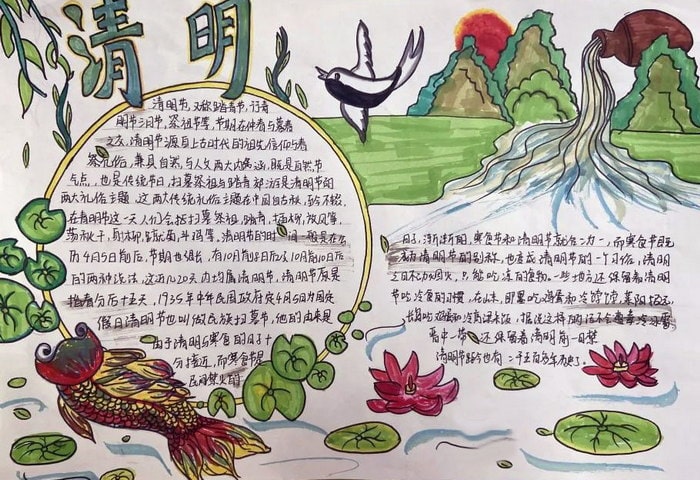 清明
清明节,又称踏青节、行清
明节、三月节、祭祖节等,节期在仲春与暮春
之交。清明节源自上古时代的祖先信仰与春
祭礼俗,兼具自然与人文两大内涵,既是自然节
气点,也是传统节日,扫墓祭祖与踏青郊游是清明节的
两大礼俗主题,这两大传统礼俗主题在中国自古
在清明节这一天人们会
荡秋千、射柳、蹴鞠、斗鸡等。清明节的时间一般是在公
历4月5日前后,节期也很长,有10日前8日后及10日前10日后
的两种说法,这近20天内均属清明节,清明节原是
指春分后十五天,1935年中华民国政府定4月5日为国定
假日清明节也叫做民族扫墓节,他的由来是
由于清明与寒食的日子十
分接近,而寒食是
民间禁火的
日子,渐渐的,寒食节和清明节就合二为一,而寒食节既
成为清明节的别称,也变成清明节的一个习俗,清明
之日不动烟火,只能吃凉的食物。一些地方还保留着清明
节吃冷食的习惯,在山东,即墨吃鸡蛋和冷饽饽,莱阳、招远、
长岛吃鸡蛋和冷高粱米饭,据说这样的话不会遭冰雹
晋中一带还保留着清明前一日禁
清明节距今也有二千五百多年历史了。